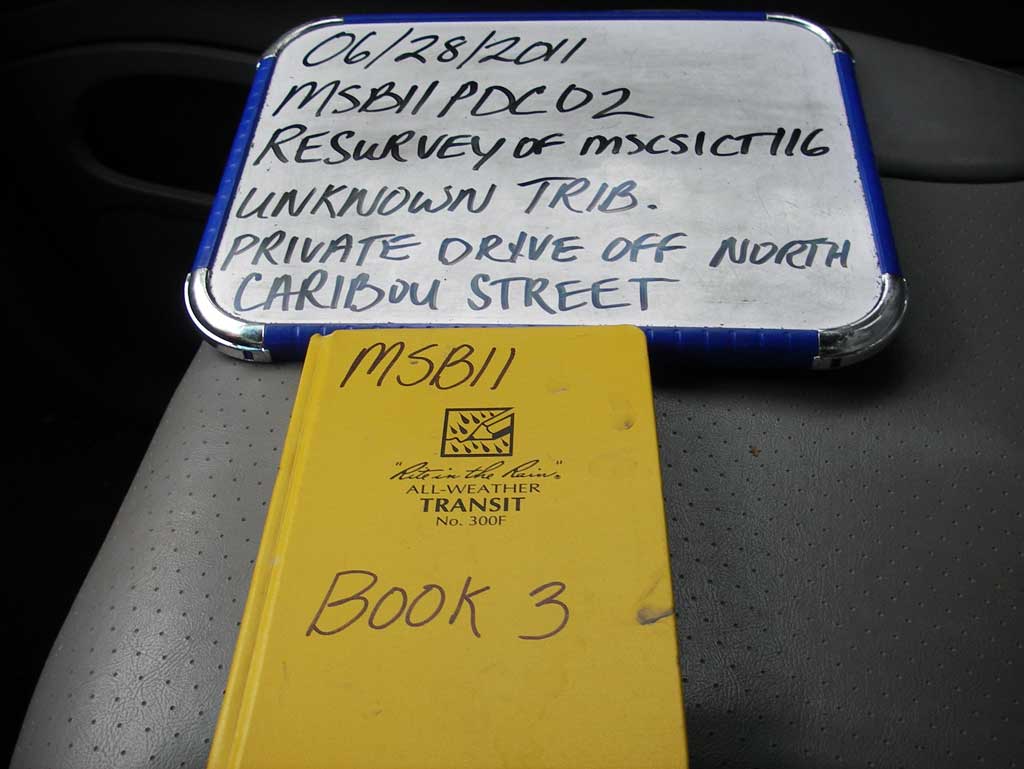 06/28/2011
MSB11PDC02
RESURVEY OF MSCS1CT116
UNKNOWN TRIB.
PRIVATE DRIVE OFF NORTH
CARIBOU STREET
MSB11
"Rite in the Rain"®
ALL-WEATHER
TRANSIT
No. 300F
BOOK 3